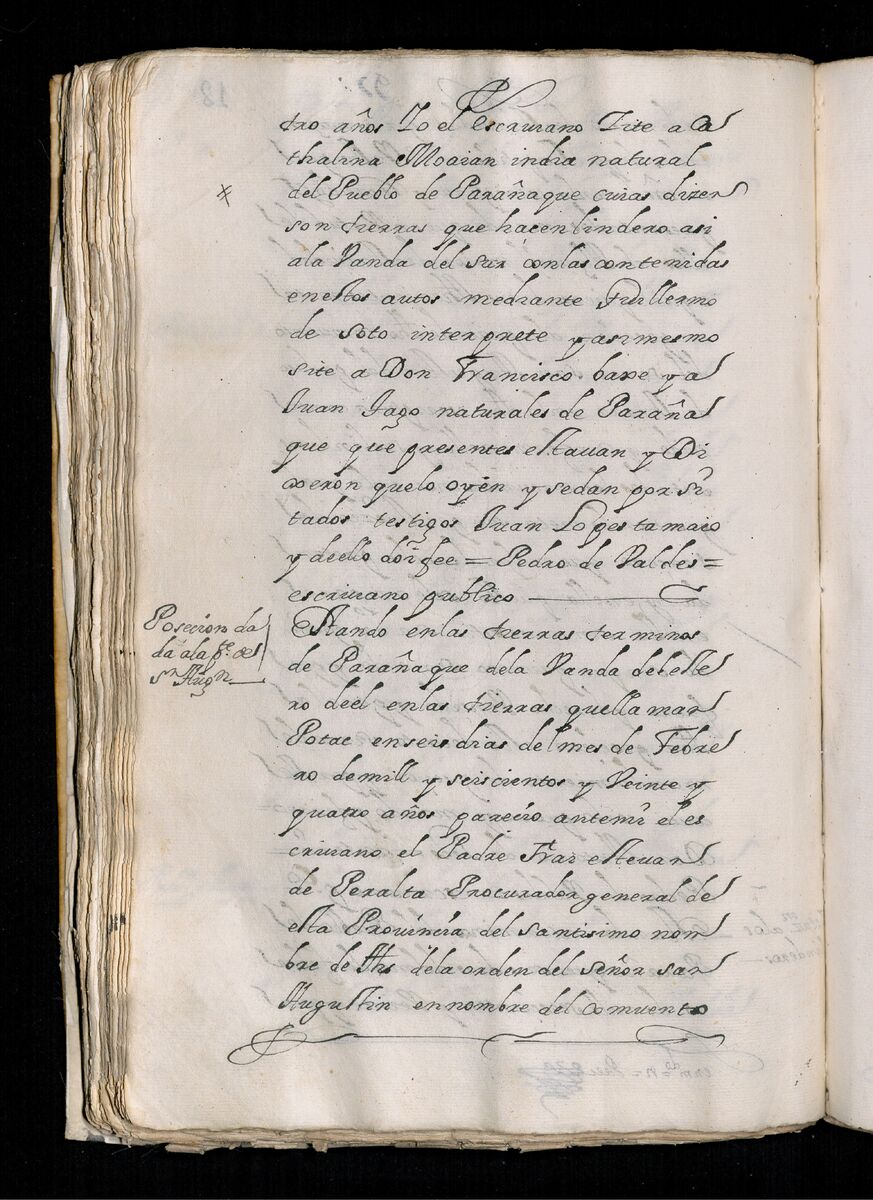 tro años Yo el escriuano Zite a Ca
thalina Moaian india natural
del Pueblo de Parañaque cuias dizen
son tierras que hacen lindero asi
ala Vanda del sur con las contenidas
enestos autos mediante Guillermo
de soto interprete y asimesmo
site a Don Francisco baxe y a
Juan Iago naturales de Paraña
que que presentes estauan y Di
xeron quelo oyen y sedan por si
tados testigos Juan Lopes tamaio
y deello doi fee = Pedro de Valdes =
escriuano publico
Posecion da
da a la pe. de
sn Augn
Estando en las tierras terminos
de Parañaque dela Vanda del este
ro deel en las tierras que llaman
Potac en seis dias del mes de Febre
ro de mill y seiscientos y Veinte y
quatro años parecio ante mi el es
criuano el Padre Frai esteuan
de Peralta Procurador general de
esta Prouincia del santisimo nom
bre de Jhs dela orden del señor san
Augustin en nombre del comuento